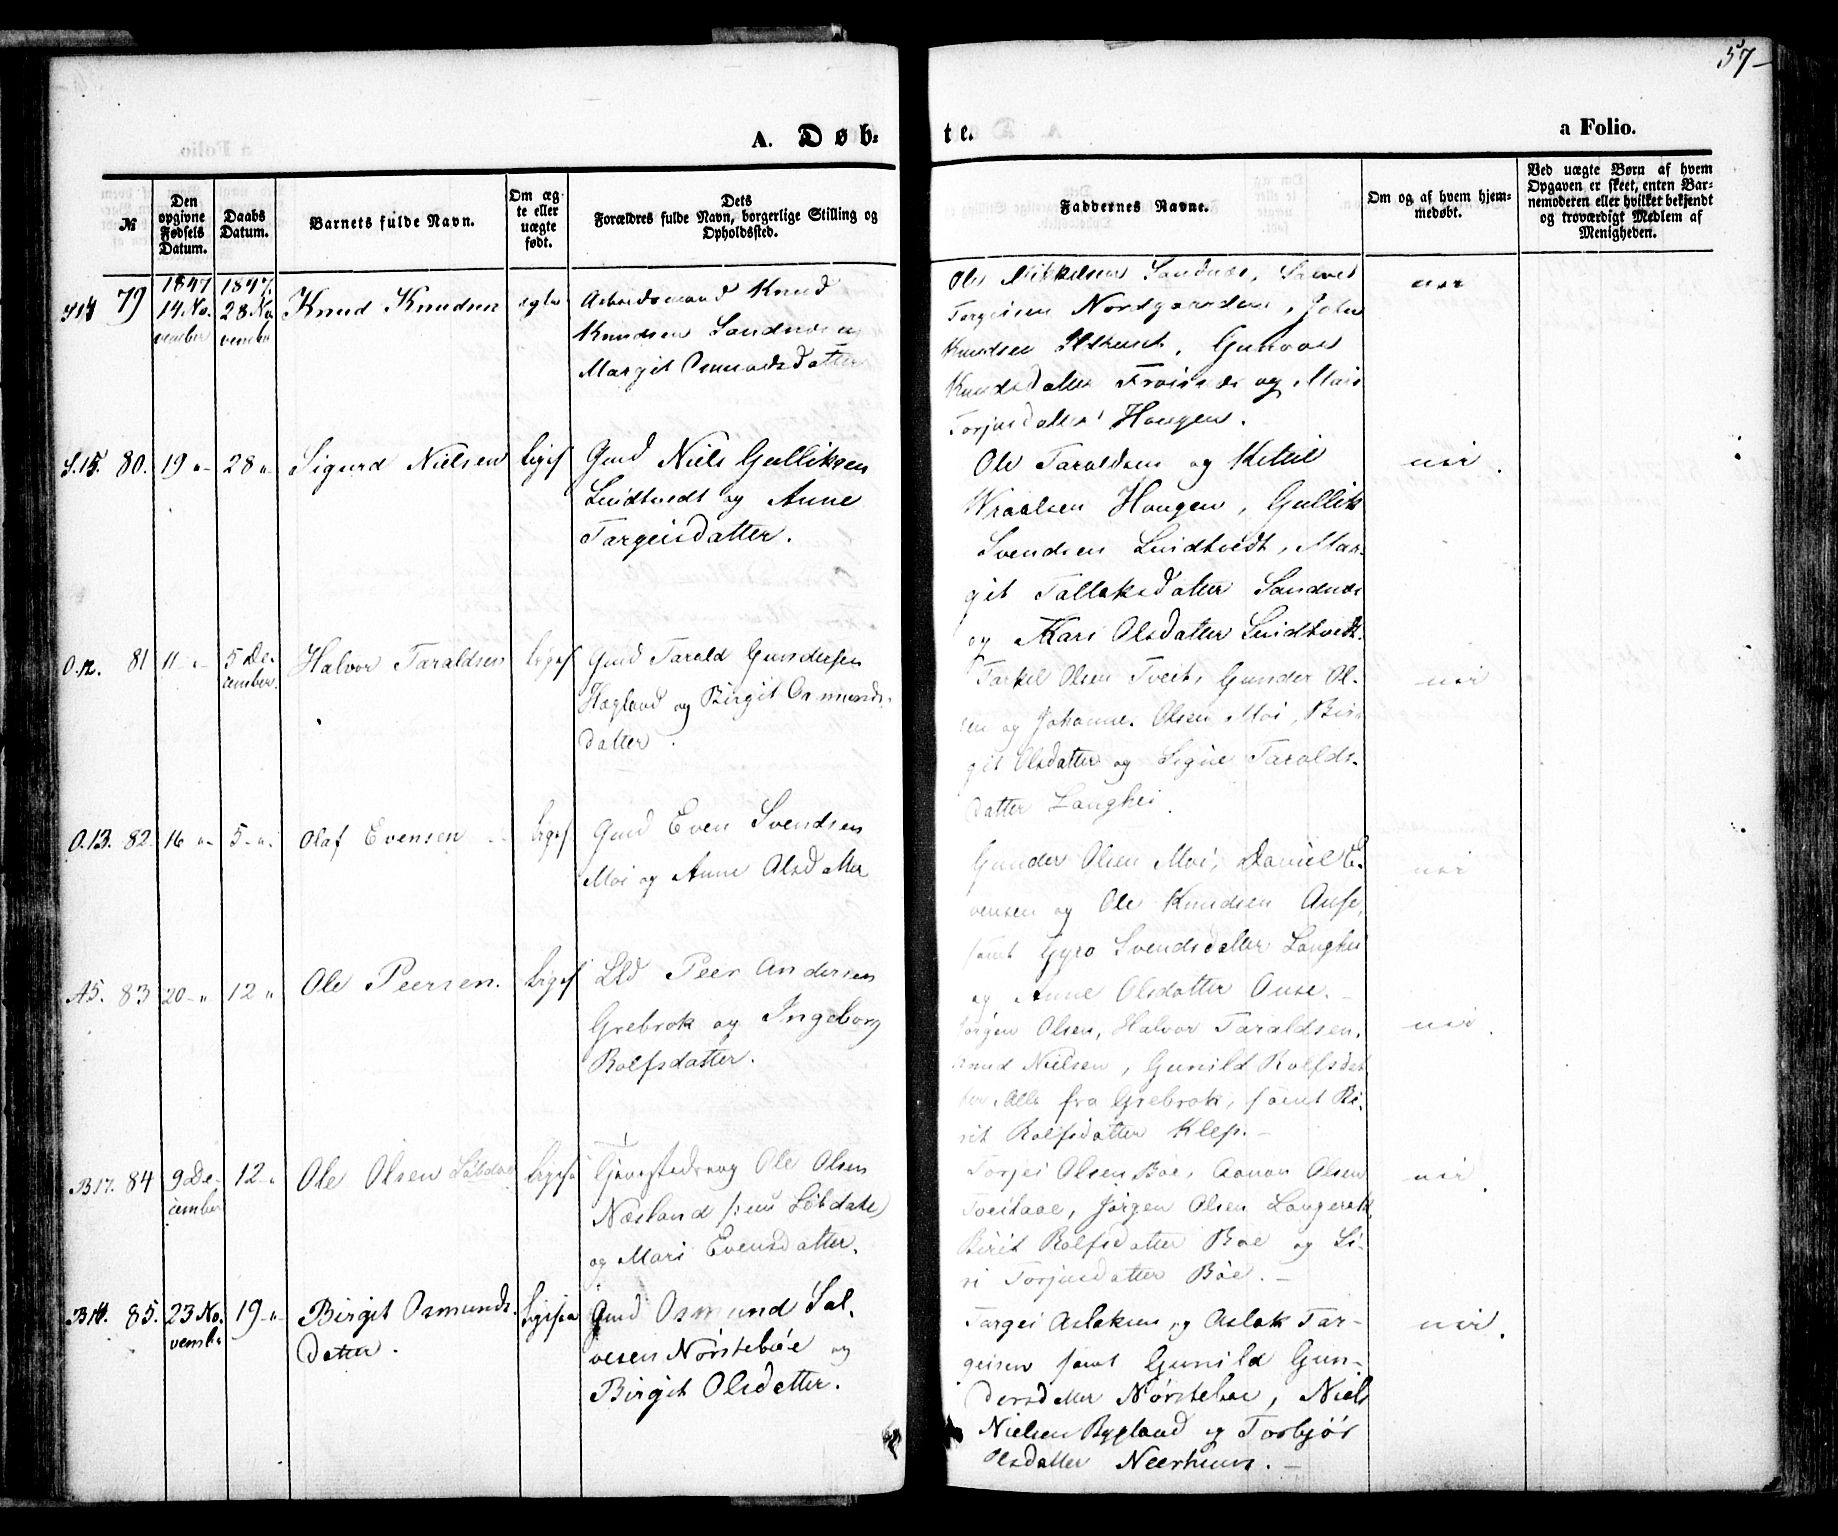 57-
A. Døb-
te.
a Folio.
№
Den opgivne Fødsels Datum.
Daabs Datum.
Barnets fulde Navn.
Om ægte eller uægte født.
Dets Forældres fulde Navn, borgerlige Stilling og Opholdssted.
Faddernes Navne.
Om og af hvem hjemmedøbt.
Ved uægte Børn af hvem Opgaven er skeet, enten Barnemoderen eller hvilket bekjendt og troværdigt Medlem af Menigheden.
79
1847 14 No-
vember
1847. 28 No
vember
Knud Knudsen
ægte
Arbeidsmand Knud
Knudsen Sandnes og
Margit Osmundsdatter
Ole Mikkelsen Sandnes,
Torgeisen Nordgaarden, John
Knudsen, Gunvor
Knudsdatter Frøisnes og
Torjusdatter Haugen.
nei
S.15. 80. 19 "- 28 "
Sigurd Nielsen
ligesf
Gmd Niels Gulliksen
Lindtvedt og Anne
Targeisdatter.
Ole Taraldsen og Ketil
Wraalsen Haugen, Gullik
Svendsen Lindtvedt, Mar-
git Tallaksdatter Sandnes
og Kari Olsdatter Lindtvedt.
nei.
O.12. 81 11 "- 5 De-
cember.
Halvor Taraldsen
ligesf
Gmd Tarald Gundersen
Hægland og Birgit Osmunds-
datter.
Tarkel Olsen Tveit, Gunder Ol-
sen og Johannes Olsen Moi, Bir-
git Olsdatter og Signe Taralds-
datter Langhei.
nei
O.13. 82. 16 "- 5-"-
Olaf Evensen
ligesf
Gmd Even Svendsen
Moi og Anne Olsdatter
Gunder Olsen Moi, Daniel E-
vensen og Ole Knudsen Ause,
samt Gyro Svendsdatter Langhei
og Anne Olsdatter Ouse.-
nei
A5. 83 20-" 12 "
Ole Peersen.
ligesf
Lld Peer Andersen
Grebrok og Ingeborg
Rolfsdatter.
Jørgen Olsen, Halvor Taraldsen,
Knud Nielsen, Gunild Rolfsdat
ter, Alle fra Grebrok, samt Bi-
rit Rolfsdatter Klep.-
nei.
B17. 84 9 De-
cember 12-"
Ole Olsen Løbdal
ligesaa
Ole Olsen
Næsland /:nu Løbdal:)
og Mari Evensdatter.
Torjei Olsen Boe, Aanon Olsen
Tveitaae, Jørgen Olsen Langerak,
Birit Rolfsdatter Boe og Si-
ri Torjusdatter Böe.-
nei.
B14. 85. 23 No-
vember 19-"
Birgit Osmunds-
datter.
ligesaa
Gmd Osmund Sal-
vesen Nørstebøe og
Birgit Olsdatter.
Targei Aslaksen og Aslak Tar-
geisen samt Gunild Gun-
dersdatter Nørsteboe, Niels
Nielsen Bygland og Torbjør
Olsdatter Neerhuus.-
nei.